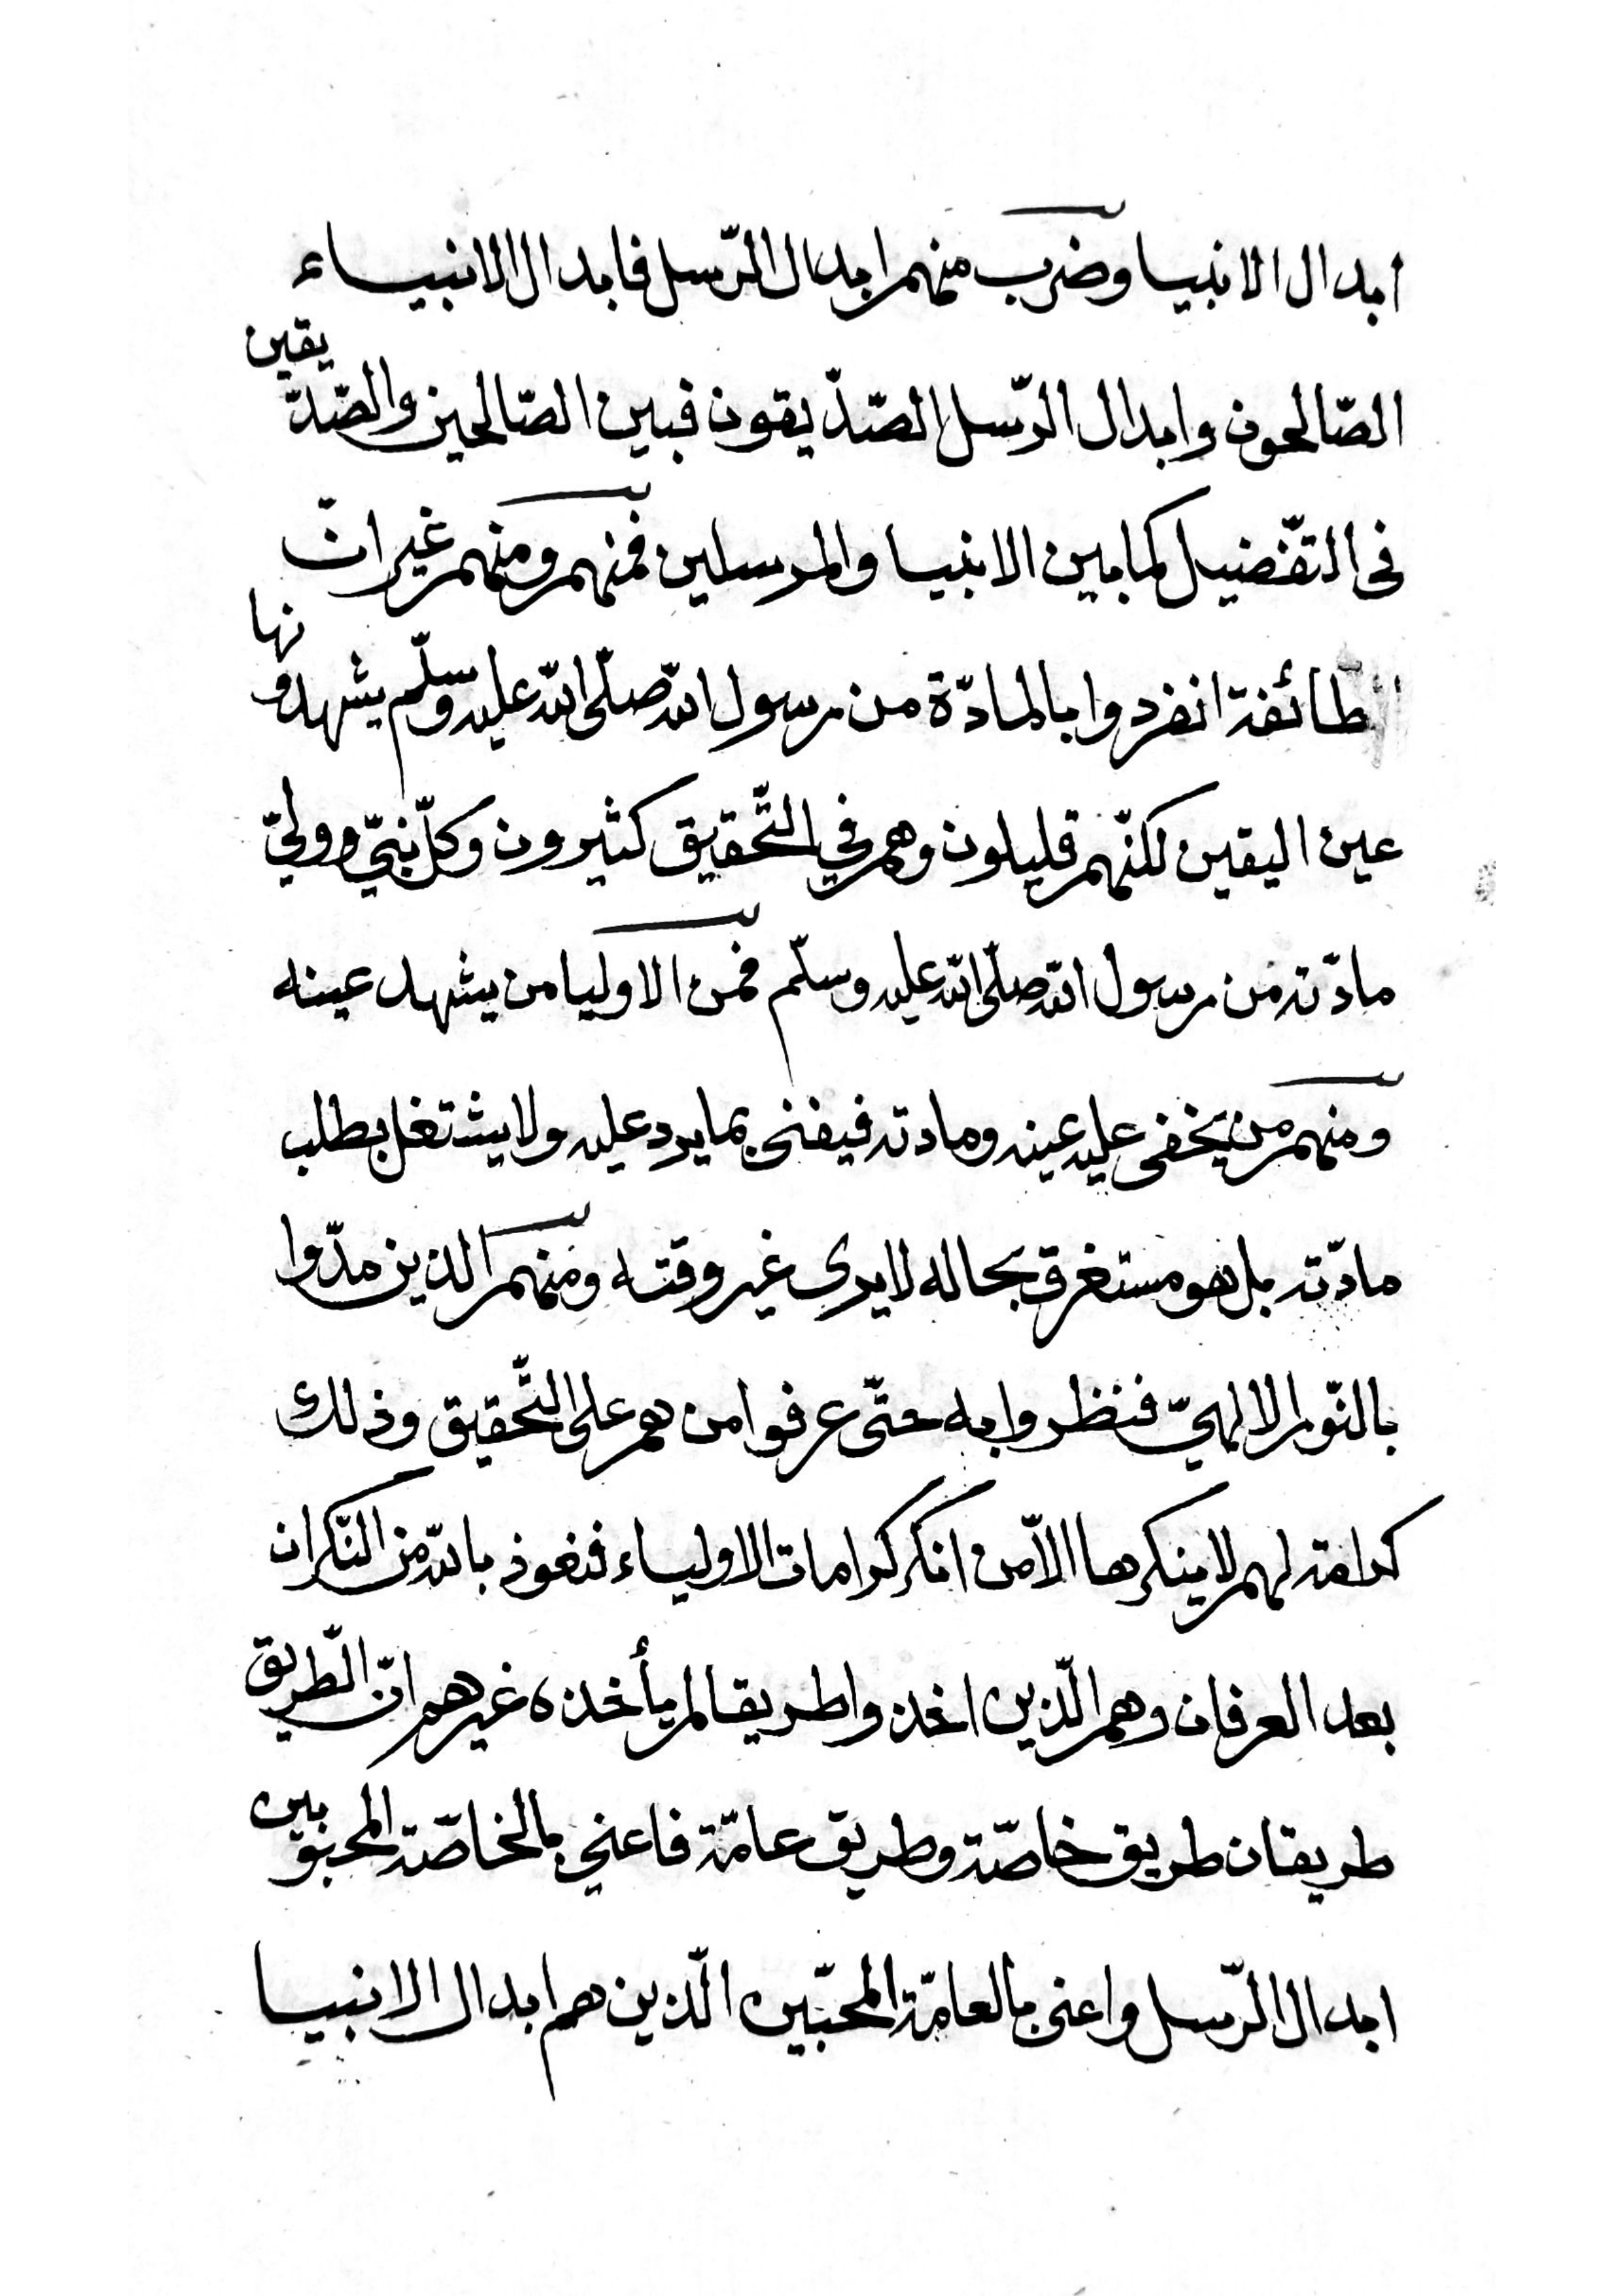 ابدال الانبيا وضرب منهم ابدال الرّسل فابدال الانبياء
الصّالحون وابدال الرّسل الصّدّيقون فبين الصّالحين والصّدّيقين
فى التفّضيل كما بين الانبيا والمرسلين فمنهم ومنهم غير انّ
طائفة انفردوا بالمادّة من رسول الله صلّى الله عليه وسلّم يشهدونها
عين اليقين لكنّهم قليلون وهم في التّحقيق كثيرون وكلّ نبيّ ووليّ
مادّته من رسول الله صلّى الله عليه وسلّم فمن الاوليا من يشهد عينه
ومنهم من يخفى عليه عينه ومادته فيفنى بما يرد عليه ولا يشتغل بطلب
مادّته بل هو مستغرق بحاله لا يرى غير وقته ومنهم الذين مدّوا
بالنّور الالهيّ فنظروا به حتّى عرفوا من هم على التّحقيق وذلك
كرامة لهم لا ينكرها الاّ من انكر كرامات الاولياء فنعوذ بالله من النّكران
بعد العرفان وهم الّذين اخذوا طريقا لم يأخذه غيرهم انّ الطّريق
طريقان طريق خاصّة وطريق عامّة فاعني بالخاصّة المحبوبين
ابدال الرّسل واعنى بالعامّة المحبّين الّذين هم ابدال الانبيا